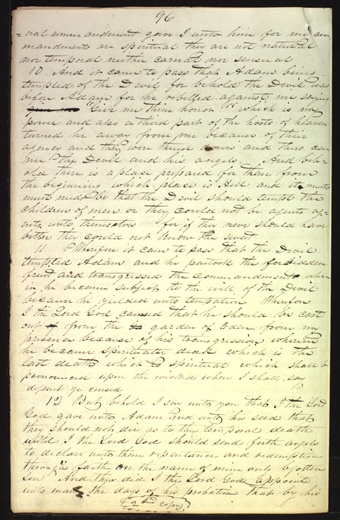 96
=ral commandment gave I unto him for my com
mandments are spiritual they are not natural
nor temporal neither carnal nor sensual
10 And it came to pass that Adam being
tempted of the Devil for behold the Devil was
before Adam for he rebelled against me saying
Give me thine honor which is my
power and also a third part of the hosts of heaven
turned he away from me because of their
agency and they were thrust down and thus came
the Devil and his angels And beh-
old there is a place prepared for them from
the beginning which place is Hell and it must
needs be that the Devil should tempt the
children of men or they could not be agents
unto themselves for if they never should have
bitter they could not know the sweet
11 Wherefore it came to pass that the Devil
tempted Adam and he partook the forbidden
fruit and transgressed the commandment wher
in he became subject to the will of the Devil
because he yielded unto temptation Wherefore
I the Lord God caused that he should be cast
out from the garden of Eden from my
presence because of his transgression wherein
he became spiritually dead which is the
last death which is spiritual which shall be
pronounced upon the wicked when I shall say
depart ye cursed
12 But behold I say unto you that I the Lord
God gave unto Adam and unto his seed that
they should not die as to the temporal death
until I the Lord God should send forth angels
to declare unto them repentance and redemption
through faith on the name of mine only begotten
Son And thus did I the Lord God appoint
unto man the days of his probation that by his